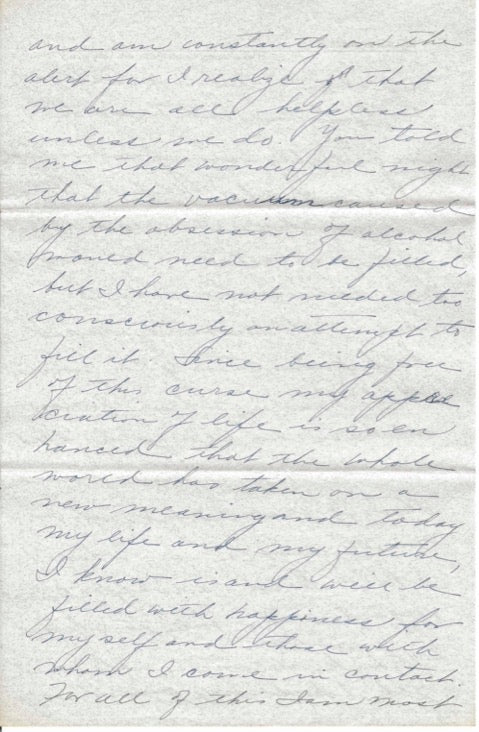 and am constantly on the
alert for I realize that
we are all helpless
unless we do. You told
me that wonderful night
that the vacuum caused
by the obsession of alcohol
would need to be filled,
but I have not needed too
consciously an attempt to
fill it. Since being free
of this curse my appre
ciation of life is so en
hanced that the whole
world has taken on a
new meaning and today
my life and my future,
I know is and will be
filled with happiness for
myself and those with
whom I come in contact.
For all of this I am most